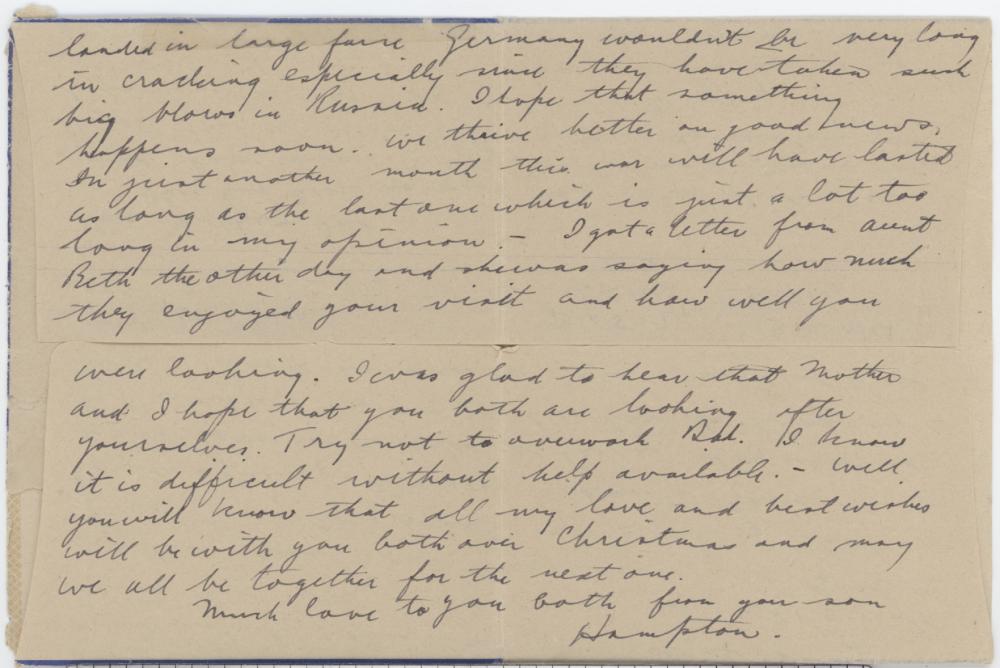 landed in large force Germany wouldn't be very long
in cracking especially since they have taken such
big blows in Russia. I hope that something
happens soon. We thrive better on good news.
In just another month this war will have lasted
as long as the last one which is just a lot too
long in my opinion. - I got a letter from Aunt
Beth the other day and she was saying how much
they enjoyed your visit and how well you
were looking. I was glad to hear that Mother
and I hope that you both are looking after
yourselves. Try not to overwork Dad. I know
it is difficult without help available. - Well
you will know that all my love and best wishes
will be with you both over Christmas and may
we all be together for the next one.
Much love to you both from your son
Hampton.